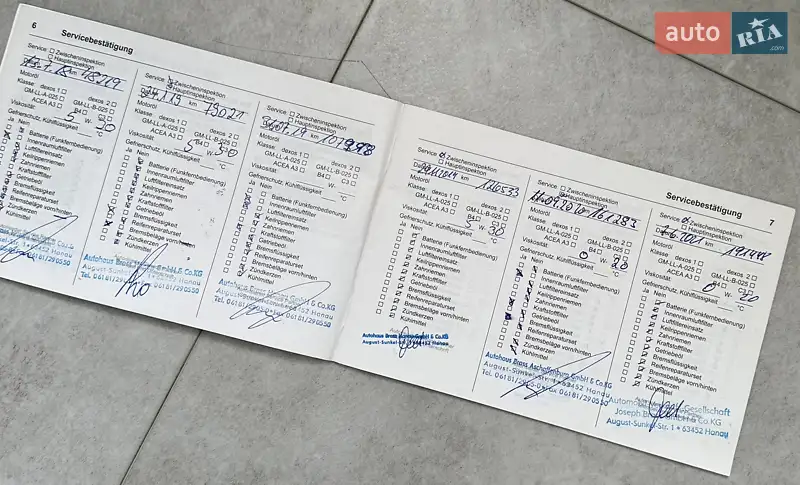 auto
RIA
.com
6
Servicebestätigung
Service: Zwischeninspektion
Hauptinspektion
km 48219
Motoröl
Klasse: dexos 1 dexos 2
GM-LL-A-025 GM-LL-B-025
ACEA A3 B4 C3
Viskosität: 5 W- 30
Gefrierschutz, Kühlflüssigkeit °C
Ja Nein
Batterie (Funkfernbedienung)
Innenraumluftfilter
Luftfiltereinsatz
Keilrippenriemen
Zahnriemen
Kraftstofffilter
Getriebeöl
Bremsflüssigkeit
Reifenreparaturset
Bremsbeläge vorn/hinten
Zündkerzen
Kühlmittel
August-Sunkel-Str.
Tel. 06181/290550
Service: Zwischeninspektion
Hauptinspektion
km 73021
Motoröl
Klasse: dexos 1 dexos 2
GM-LL-A-025 GM-LL-B-025
ACEA A3 B4 C3
Viskosität: 5 W- 30
Gefrierschutz, Kühlflüssigkeit °C
Ja Nein
Batterie (Funkfernbedienung)
Innenraumluftfilter
Luftfiltereinsatz
Keilrippenriemen
Zahnriemen
Kraftstofffilter
Getriebeöl
Bremsflüssigkeit
Reifenreparaturset
Bremsbeläge vorn/hinten
Zündkerzen
Kühlmittel
Autohaus Brass Hanau GmbH & Co.KG
August-Sunkel-Str. Hanau
06181/290550
Service: Zwischeninspektion
Hauptinspektion
km 101998
Motoröl
Klasse: dexos 1 dexos 2
GM-LL-A-025 GM-LL-B-025
ACEA A3 B4 C3
Viskosität: W-
Gefrierschutz, Kühlflüssigkeit °C
Ja Nein
Batterie (Funkfernbedienung)
Innenraumluftfilter
Luftfiltereinsatz
Keilrippenriemen
Zahnriemen
Kraftstofffilter
Getriebeöl
Bremsflüssigkeit
Reifenreparaturset
Bremsbeläge vorn/hinten
Zündkerzen
Kühlmittel
Autohaus Brass Hanau GmbH & Co.KG
Hanau
Tel. 06181/290550
Servicebestätigung
7
Service: Zwischeninspektion
Hauptinspektion
km 126533
Motoröl
Klasse: dexos 1 dexos 2
GM-LL-A-025 GM-LL-B-025
ACEA A3 B4 C3
Viskosität: 5 W- 30
Gefrierschutz, Kühlflüssigkeit °C
Ja Nein
Batterie (Funkfernbedienung)
Innenraumluftfilter
Luftfiltereinsatz
Keilrippenriemen
Zahnriemen
Kraftstofffilter
Getriebeöl
Bremsflüssigkeit
Reifenreparaturset
Bremsbeläge vorn/hinten
Zündkerzen
Kühlmittel
Autohaus Brass Hanau GmbH & Co.KG
August-Sunkel- 63452 Hanau
Service: Zwischeninspektion
Hauptinspektion
11.09.2020 km 161283
Motoröl
Klasse: dexos 1 dexos 2
GM-LL-A-025 GM-LL-B-025
ACEA A3 B4 C3
Viskosität: 0 W- 20
Gefrierschutz, Kühlflüssigkeit °C
Ja Nein
Batterie (Funkfernbedienung)
Innenraumluftfilter
Luftfiltereinsatz
Keilrippenriemen
Zahnriemen
Kraftstofffilter
Getriebeöl
Bremsflüssigkeit
Reifenreparaturset
Bremsbeläge vorn/hinten
Zündkerzen
Kühlmittel
Autohaus Brass Aschaffenburg GmbH & Co.KG
August-Sunkel-Str. 63452 Hanau
Tel. 06181/2905-0 Fax 06181/290550
Service: Zwischeninspektion
Hauptinspektion
km
Motoröl
Klasse: dexos 1 dexos 2
GM-LL-A-025 GM-LL-B-025
ACEA A3 B4 C3
Viskosität: 0 W- 20
Gefrierschutz, Kühlflüssigkeit °C
Ja Nein
Batterie (Funkfernbedienung)
Innenraumluftfilter
Luftfiltereinsatz
Keilrippenriemen
Zahnriemen
Kraftstofffilter
Getriebeöl
Bremsflüssigkeit
Reifenreparaturset
Bremsbeläge vorn/hinten
Zündkerzen
Kühlmittel
Gesellschaft
Joseph Brass GmbH & Co.KG
August-Sunkel-Str. 1 • 63452 Hanau